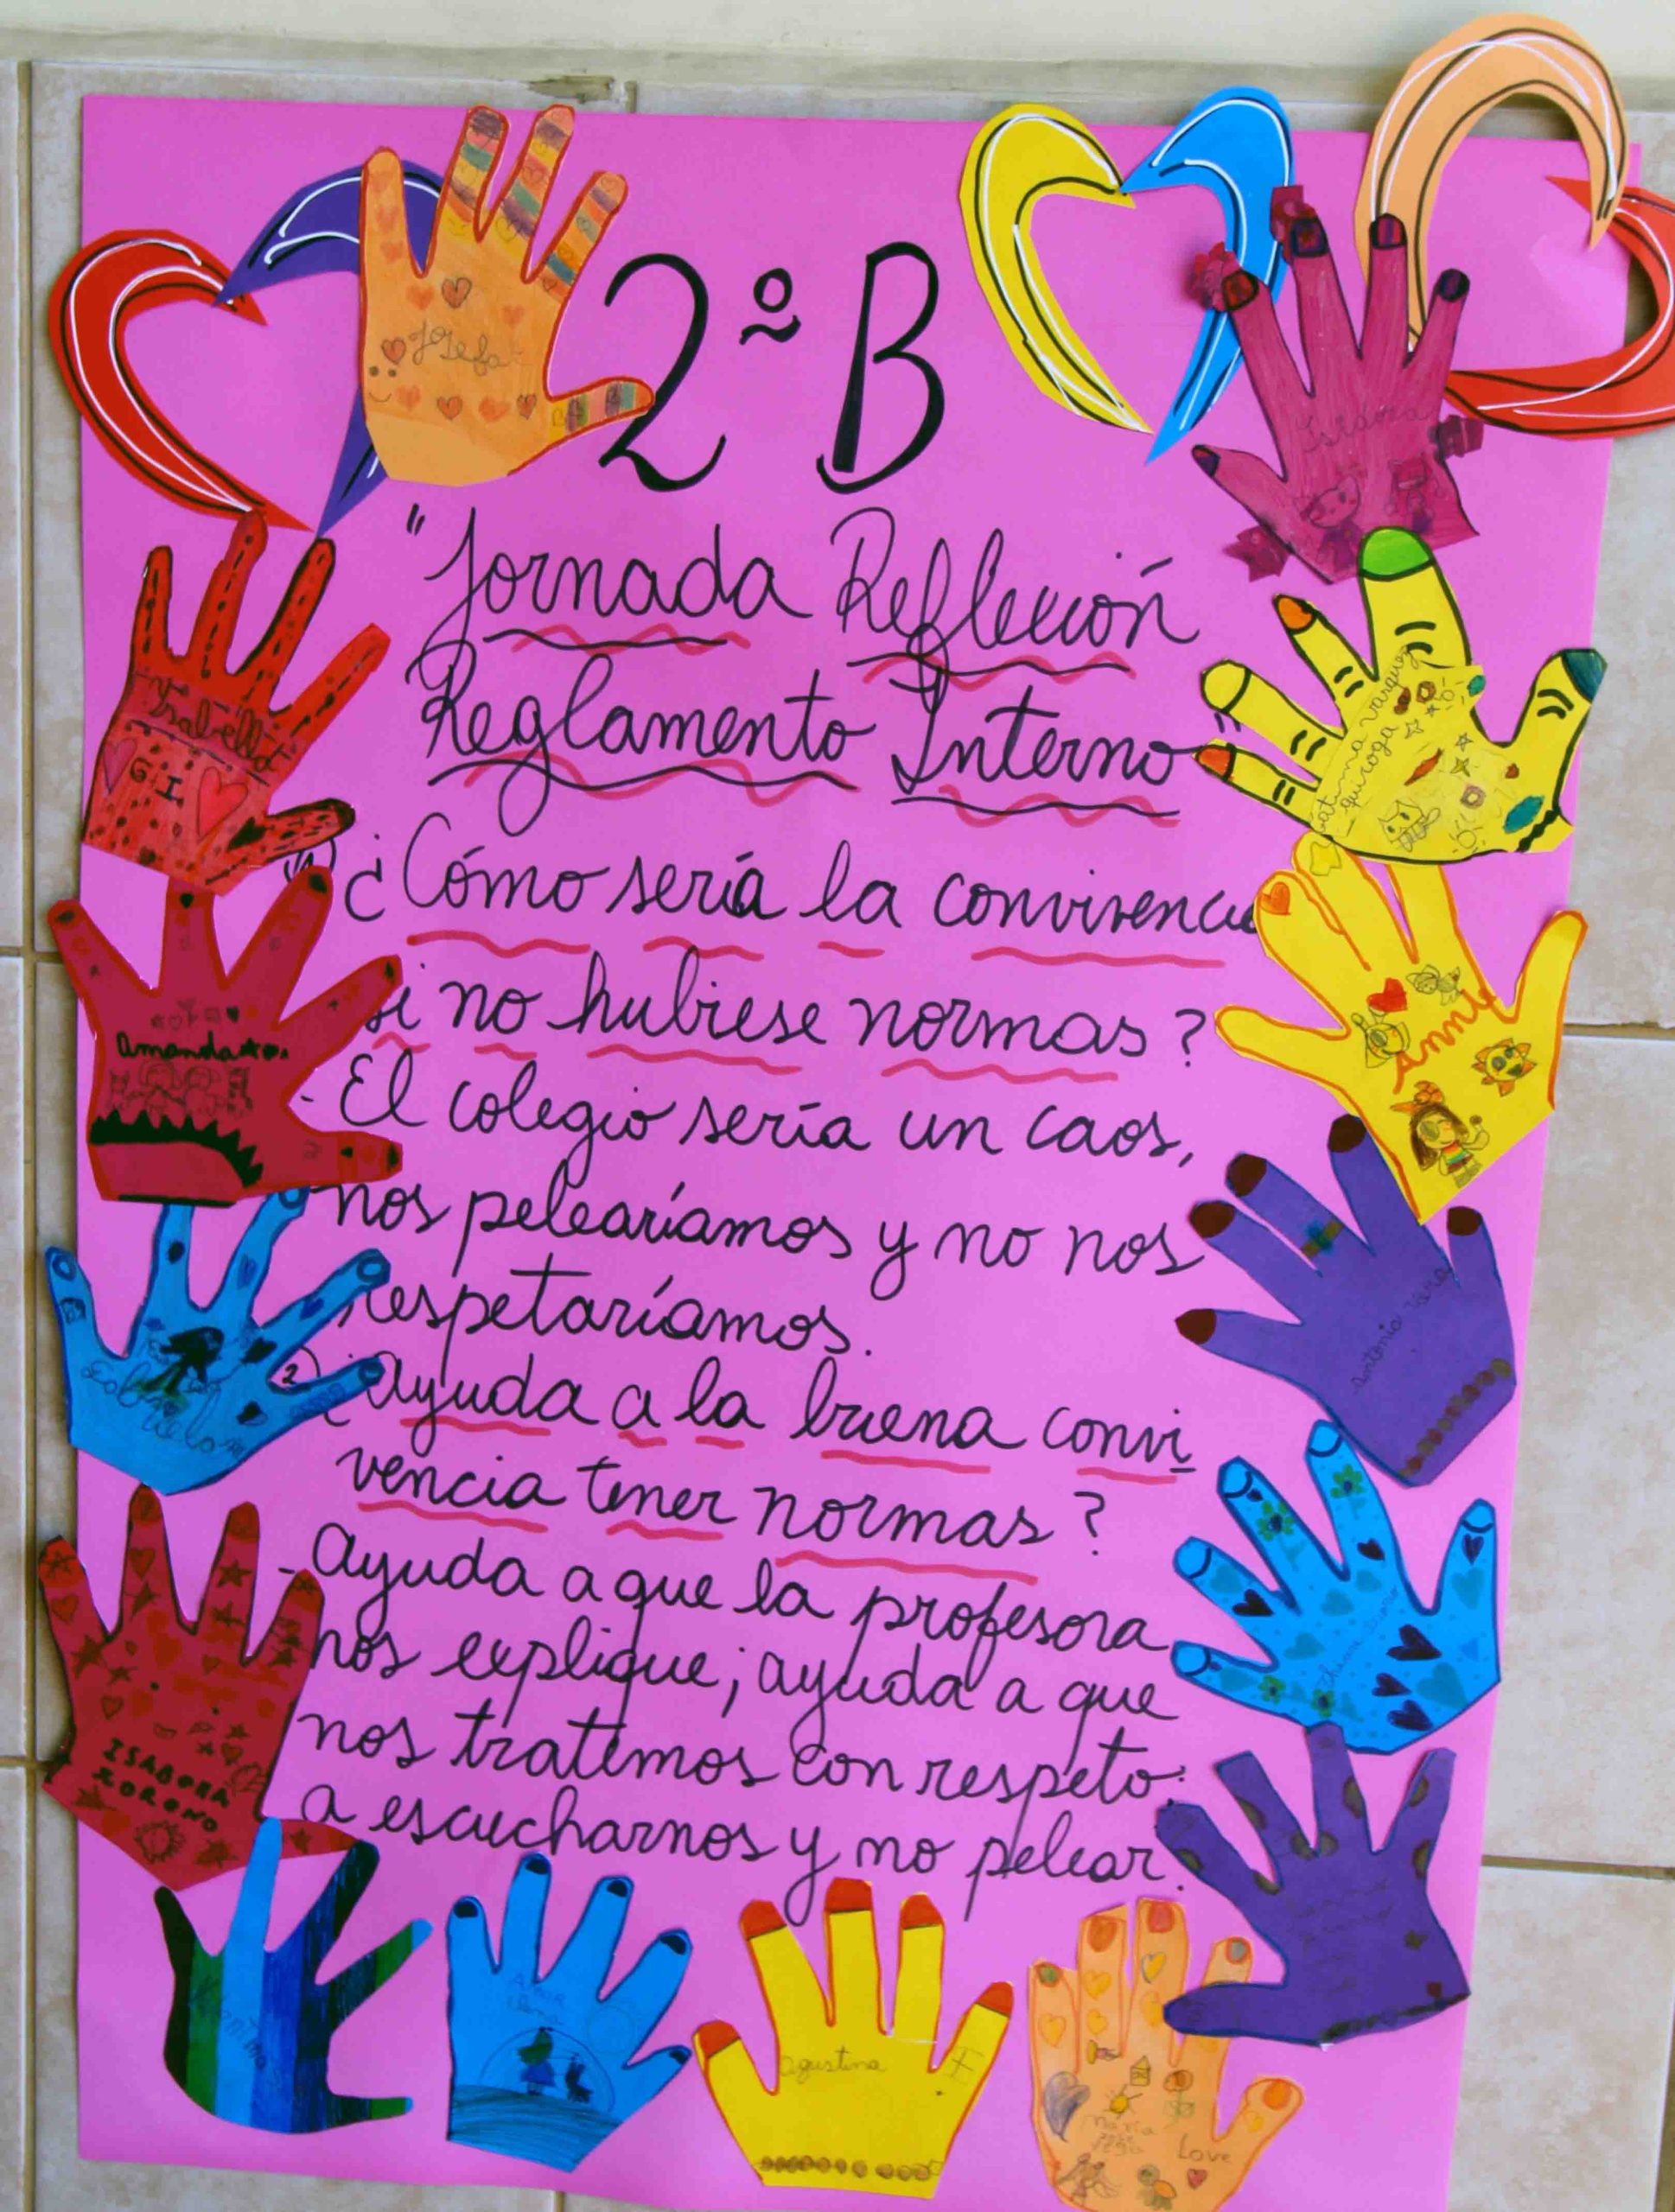 2º B
"Jornada Reflexión
Reglamento Interno"
1) ¿Cómo sería la convivencia
si no hubiese normas?
- El colegio sería un caos,
nos pelearíamos y no nos
respetaríamos.
2) ¿Ayuda a la buena convi
vencia tener normas?
- Ayuda a que la profesora
nos explique; ayuda a que
nos tratemos con respeto:
a escucharnos y no pelear.
Josefa
Isidora
Isabella
G I
vargas
quiroga
Amanda
Annie
antonia vera
ISADORA
MORENO
Agustina
maria
Love